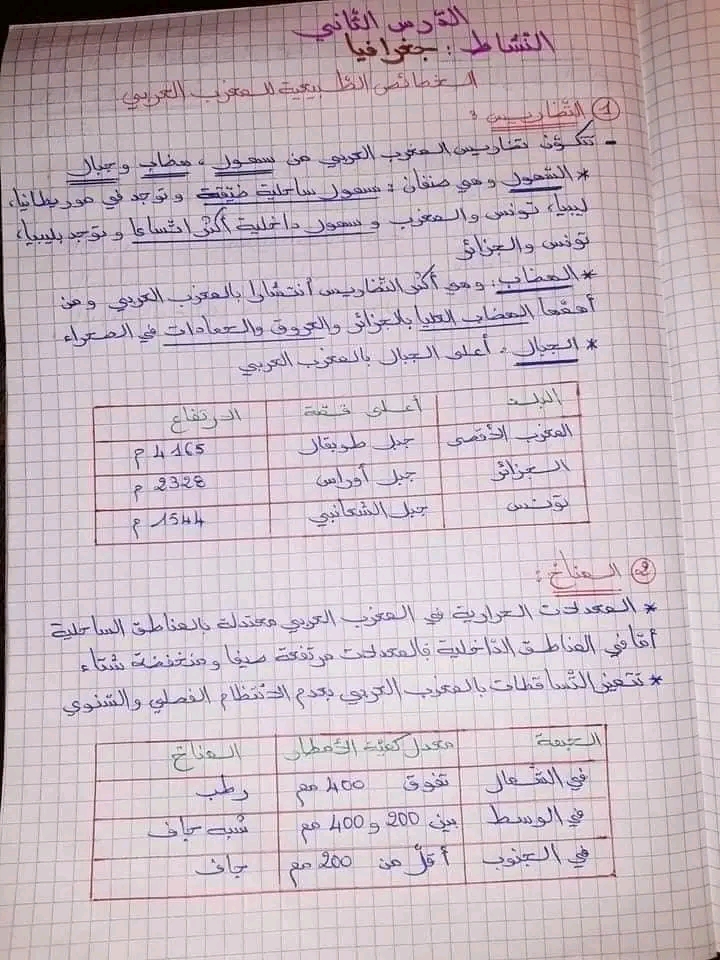 الدّرس الثّاني
النّشاط : جغرافيا
الخصائص الطّبيعية للمغرب العربي
1 التّضاريس :
- تتكوّن تضاريس المغرب العربي من سهول ، هضاب وجبال
* السّهول وهي صنفان : سهول ساحلية ضيّقة وتوجد في موريطانيا،
ليبيا، تونس والمغرب وسهول داخلية أكثر اتّساعا وتوجد بليبيا،
تونس والجزائر
* الهضاب : وهي أكثر التّضاريس انتشارا بالمغرب العربي ومن
أهمّها الهضاب العليا بالجزائر والعروق والحمادات في الصحراء
* الجبال : أعلى الجبال بالمغرب العربي
البلد أعلى قمّة الارتفاع
المغرب الأقصى جبل طوبقال 4165 م
الجزائر جبل أوراس 2328 م
تونس جبل الشّعانبي 1544 م
2 المناخ :
* المعدلات الحرارية في المغرب العربي معتدلة بالمناطق الساحلية
أمّا في المناطق الدّاخلية فالمعدلات مرتفعة صيفا ومنخفضة شتاء
* تتميّز التّساقطات بالمغرب العربي بعدم الانتظام الفصلي والسّنوي
الجهة معدل كميّة الأمطار المناخ
في الشّمال تفوق 400 مم رطب
في الوسط بين 200 و 400 مم شبه جاف
في الجنوب أقلّ من 200 مم جاف